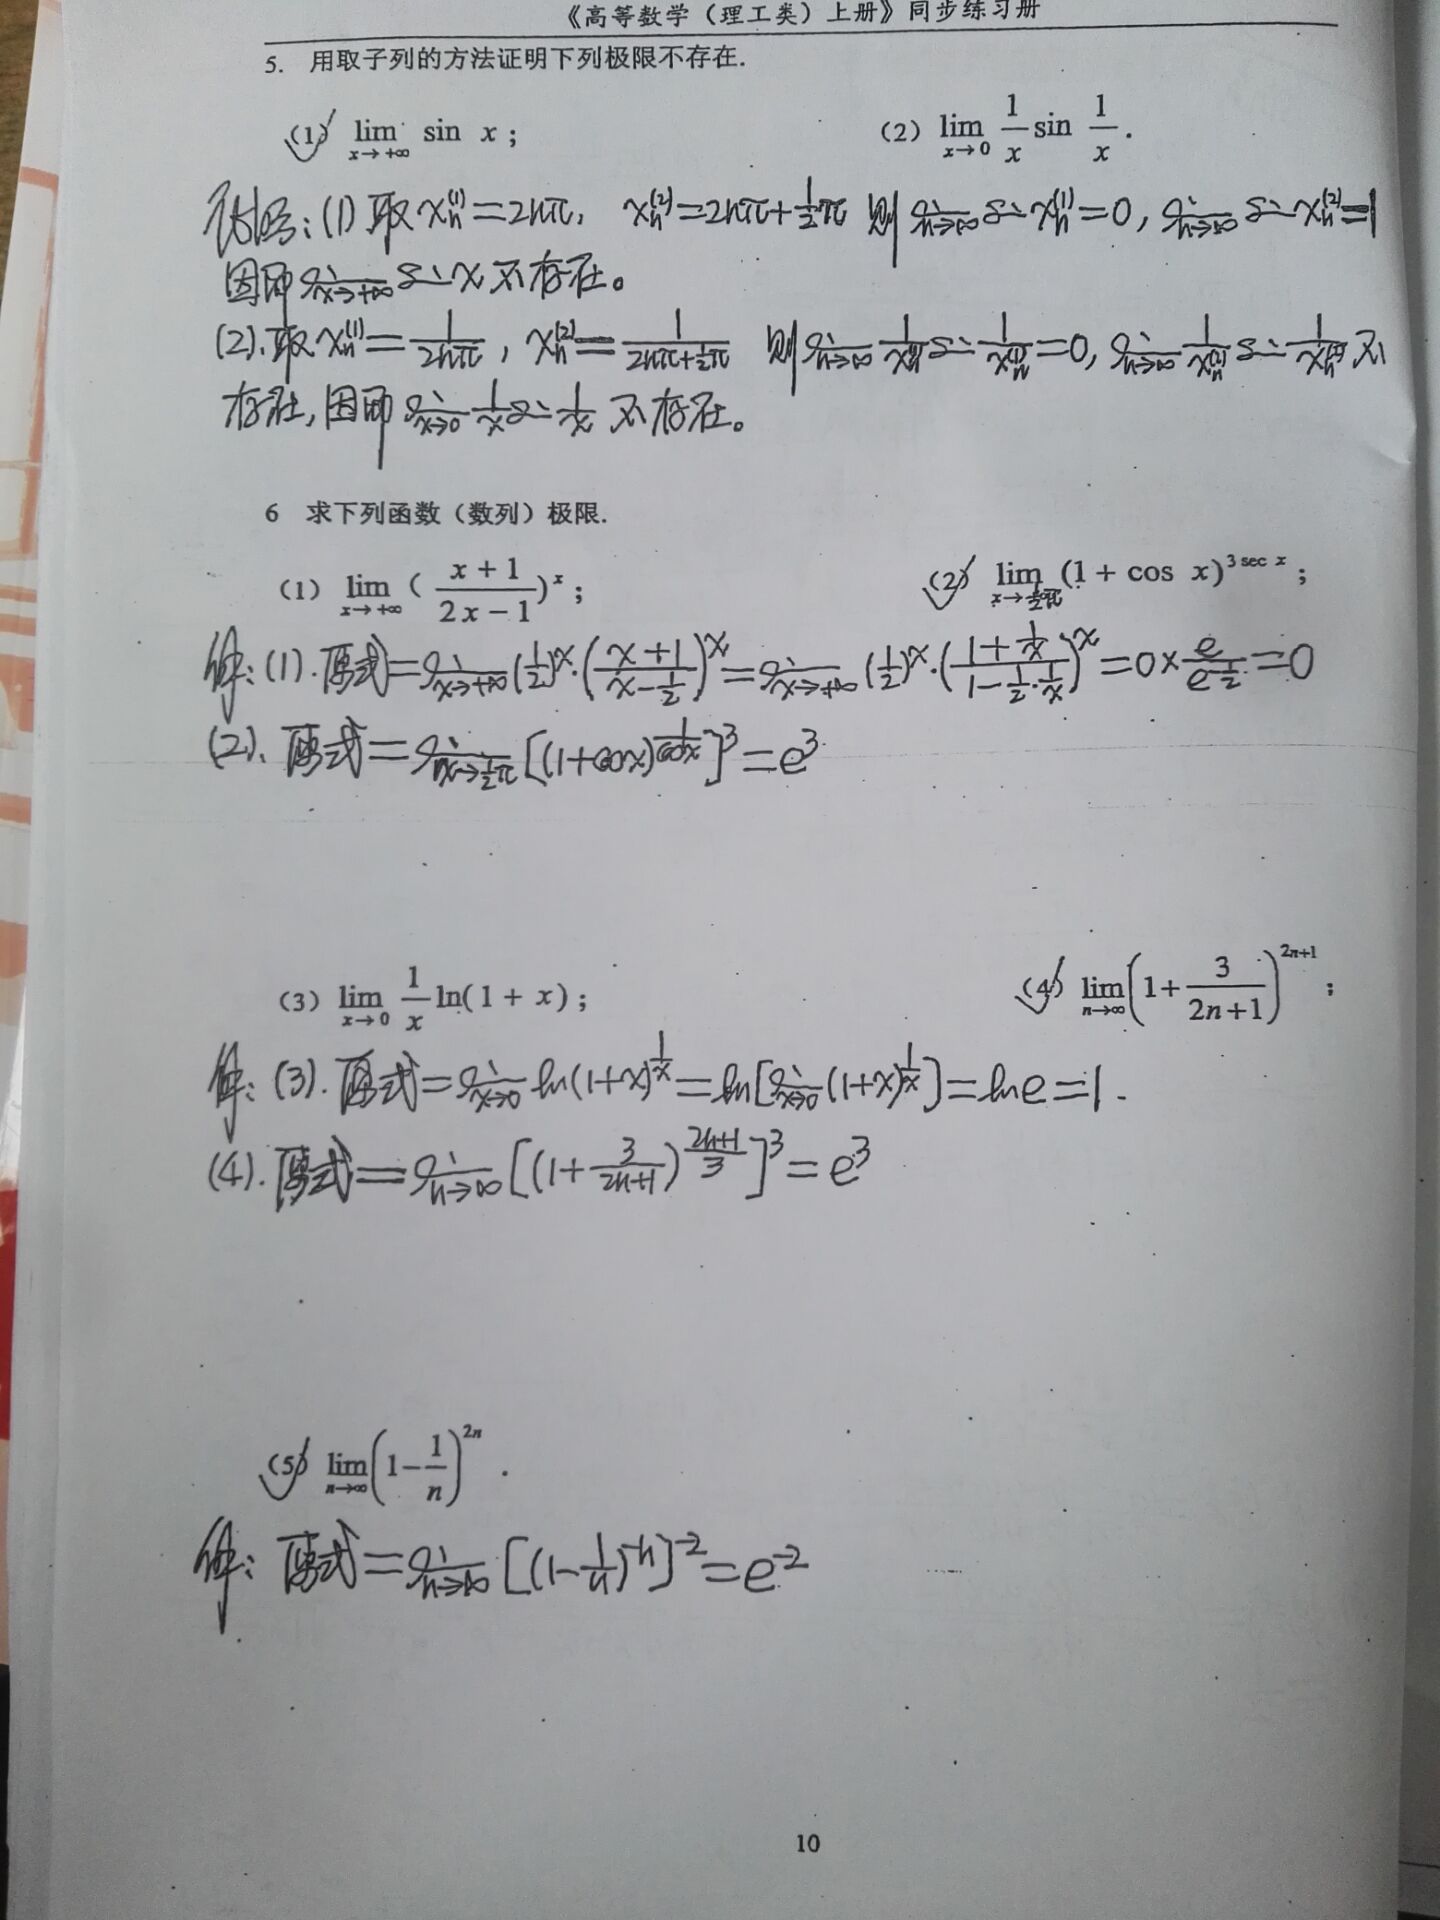 《高等数学（理工类）上册》同步练习册
5. 用取子列的方法证明下列极限不存在.
(1) lim_{x→+∞} sin x； (2) lim_{x→0} 1/x sin 1/x.
证明：(1) 取 x_n^{(1)}=2nπ, x_n^{(2)}=2nπ+1/2π 则 lim_{n→∞} sin x_n^{(1)}=0, lim_{n→∞} sin x_n^{(2)}=1
因而 lim_{x→+∞} sin x 不存在。
(2). 取 x_n^{(1)}=1/(2nπ), x_n^{(2)}=1/(2nπ+1/2π) 则 lim_{n→∞} 1/x_n^{(1)} sin 1/x_n^{(1)}=0, lim_{n→∞} 1/x_n^{(2)} sin 1/x_n^{(2)} 不
存在, 因而 lim_{x→0} 1/x sin 1/x 不存在。
6 求下列函数（数列）极限.
(1) lim_{x→+∞} ((x+1)/(2x-1))^x； (2) lim_{x→1/2π} (1+cos x)^{3 sec x}；
解：(1). 原式=lim_{x→+∞} (1/2)^x·((x+1)/(x-1/2))^x=lim_{x→+∞} (1/2)^x·((1+1/x)/(1-1/2·1/x))^x=0×e/e^{-1/2}=0
(2). 原式=lim_{x→1/2π} [(1+cosx)^{1/cosx}]^3=e^3
(3) lim_{x→0} 1/x ln(1+x)； (4) lim_{n→∞} (1+3/(2n+1))^{2n+1}；
解：(3). 原式=lim_{x→0} ln(1+x)^{1/x}=ln[lim_{x→0} (1+x)^{1/x}]=lne=1.
(4). 原式=lim_{n→∞} [(1+3/(2n+1))^{(2n+1)/3}]^3=e^3
(5) lim_{n→∞} (1-1/n)^{2n}.
解：原式=lim_{n→∞} [(1-1/n)^{-n}]^{-2}=e^{-2}
10